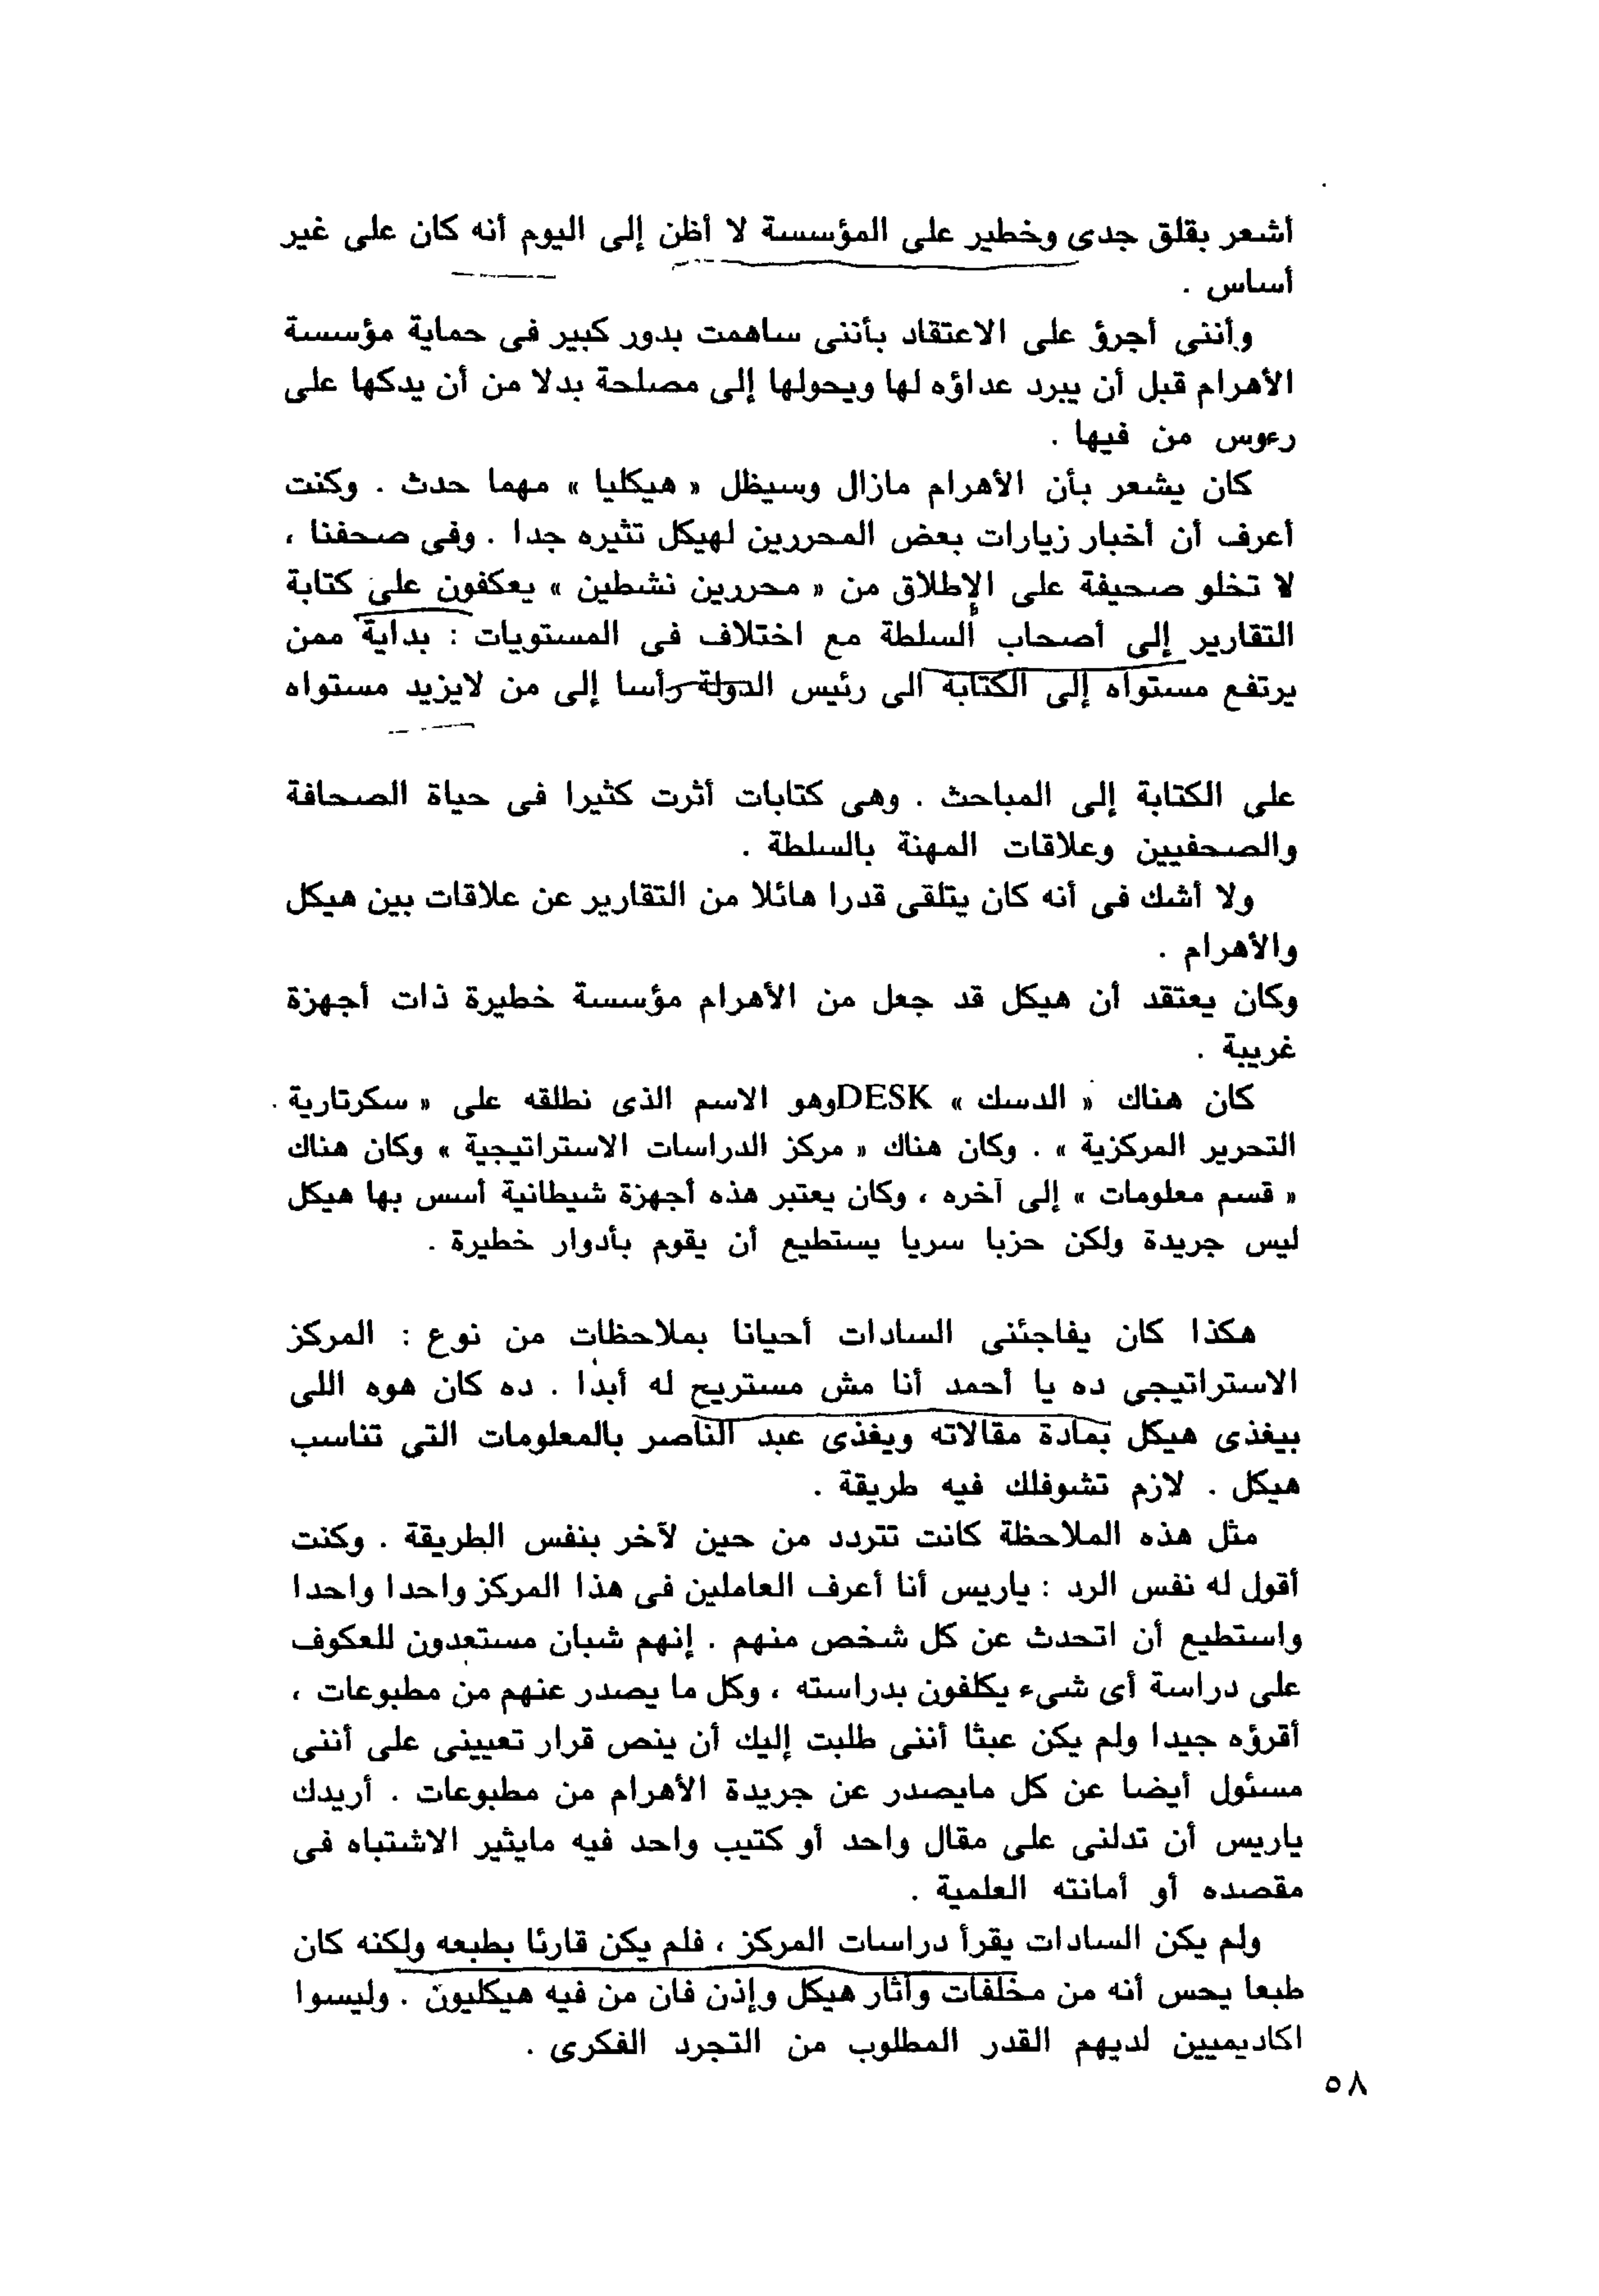 أشعر بقلق جدى وخطير على المؤسسة لا أظن إلى اليوم أنه كان على غير
أساس .
وأننى أجرؤ على الاعتقاد بأننى ساهمت بدور كبير فى حماية مؤسسة
الأهرام قبل أن يبرد عداؤه لها ويحولها إلى مصلحة بدلا من أن يدكها على
رءوس من فيها .
كان يشعر بأن الأهرام مازال وسيظل « هيكليا » مهما حدث . وكنت
أعرف أن أخبار زيارات بعض المحررين لهيكل تثيره جدا . وفى صحفنا ،
لا تخلو صحيفة على الإطلاق من « محررين نشطين » يعكفون على كتابة
التقارير إلى أصحاب السلطة مع اختلاف فى المستويات : بداية ممن
يرتفع مستواه إلى الكتابة الى رئيس الدولة رأسا إلى من لايزيد مستواه
على الكتابة إلى المباحث . وهى كتابات أثرت كثيرا فى حياة الصحافة
والصحفيين وعلاقات المهنة بالسلطة .
ولا أشك فى أنه كان يتلقى قدرا هائلا من التقارير عن علاقات بين هيكل
والأهرام .
وكان يعتقد أن هيكل قد جعل من الأهرام مؤسسة خطيرة ذات أجهزة
غريبة .
كان هناك « الدسك » DESKوهو الاسم الذى نطلقه على « سكرتارية
التحرير المركزية » . وكان هناك « مركز الدراسات الاستراتيجية » وكان هناك
« قسم معلومات » إلى آخره ، وكان يعتبر هذه أجهزة شيطانية أسس بها هيكل
ليس جريدة ولكن حزبا سريا يستطيع أن يقوم بأدوار خطيرة .
هكذا كان يفاجئنى السادات أحيانا بملاحظات من نوع : المركز
الاستراتيجى ده يا أحمد أنا مش مستريح له أبدا . ده كان هوه اللى
بيغذى هيكل بمادة مقالاته ويغذى عبد الناصر بالمعلومات التى تناسب
هيكل . لازم تشوفلك فيه طريقة .
مثل هذه الملاحظة كانت تتردد من حين لآخر بنفس الطريقة . وكنت
أقول له نفس الرد : ياريس أنا أعرف العاملين فى هذا المركز واحدا واحدا
واستطيع أن اتحدث عن كل شخص منهم . إنهم شبان مستعدون للعكوف
على دراسة أى شىء يكلفون بدراسته ، وكل ما يصدر عنهم من مطبوعات ،
أقرؤه جيدا ولم يكن عبثا أننى طلبت إليك أن ينص قرار تعيينى على أننى
مسئول أيضا عن كل مايصدر عن جريدة الأهرام من مطبوعات . أريدك
ياريس أن تدلنى على مقال واحد أو كتيب واحد فيه مايثير الاشتباه فى
مقصده أو أمانته العلمية .
ولم يكن السادات يقرأ دراسات المركز ، فلم يكن قارئا بطبعه ولكنه كان
طبعا يحس أنه من مخلفات وأثار هيكل وإذن فان من فيه هيكليون . وليسوا
اكاديميين لديهم القدر المطلوب من التجرد الفكرى .
٥٨